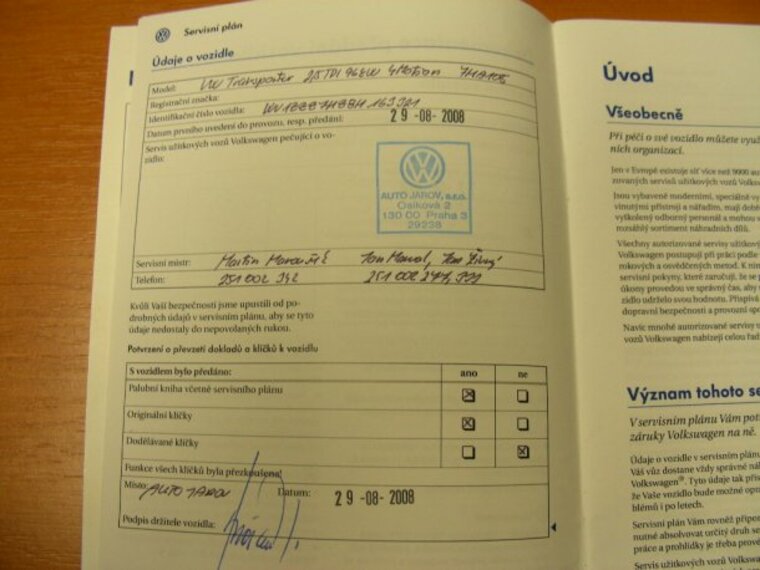 Servisní plán
Údaje o vozidle
Model: VW Transporter 2,5 TDI 96kW 4Motion
Registrační značka:
Identifikační číslo vozidla:
Datum prvního uvedení do provozu, resp. předání: 29-08-2008
Servis užitkových vozů Volkswagen pečující o vo-
zidlo:
AUTO JAROV, s.r.o.
Osiková 2
130 00 Praha 3
29238
Servisní mistr: Martin
Telefon: 251 002 342
Kvůli Vaší bezpečnosti jsme upustili od po-
drobných údajů v servisním plánu, aby se tyto
údaje nedostaly do nepovolaných rukou.
Potvrzení o převzetí dokladů a klíčků k vozidlu
S vozidlem bylo předáno: ano ne
Palubní kniha včetně servisního plánu
Originální klíčky
Dodělávané klíčky
Funkce všech klíčků byla přezkoušena!
Místo: AUTO JAROV Datum: 29-08-2008
Podpis držitele vozidla:
Úvod
Všeobecně
Při péči o své vozidlo můžete využ
ních organizací.
Jen v Evropě existuje síť více než 9000 au
zovaných servisů užitkových vozů Volksw
Jsou vybavené moderními, speciálně vy
vinutými přístroji a nářadím, mají dobř
vyškolený odborný personál a mohou v
rozsáhlý sortiment náhradních dílů.
Všechny autorizované servisy užitkový
Volkswagen postupují při práci podle
rokových a osvědčených metod. K nim
servisní pokyny, které zaručují, že se p
úkony provedou ve správný čas, aby
zidlo udrželo svou hodnotu. Přispívá
dopravní bezpečnosti a provozní spo
Navíc mnohé autorizované servisy u
vozů Volkswagen nabízejí celou řad
Význam tohoto se
V servisním plánu Vám pot
záruky Volkswagen na ně.
Údaje o vozidle v servisním plánu
Váš vůz dostane vždy správné náh
Volkswagen®. Tyto údaje tak přis
že Vaše vozidlo bude možné opra
blémů i po letech.
Servisní plán Vám rovněž připom
nutné absolvovat určitý druh se
práce a prohlídky je třeba prové
Servis užitkových vozů Volksw